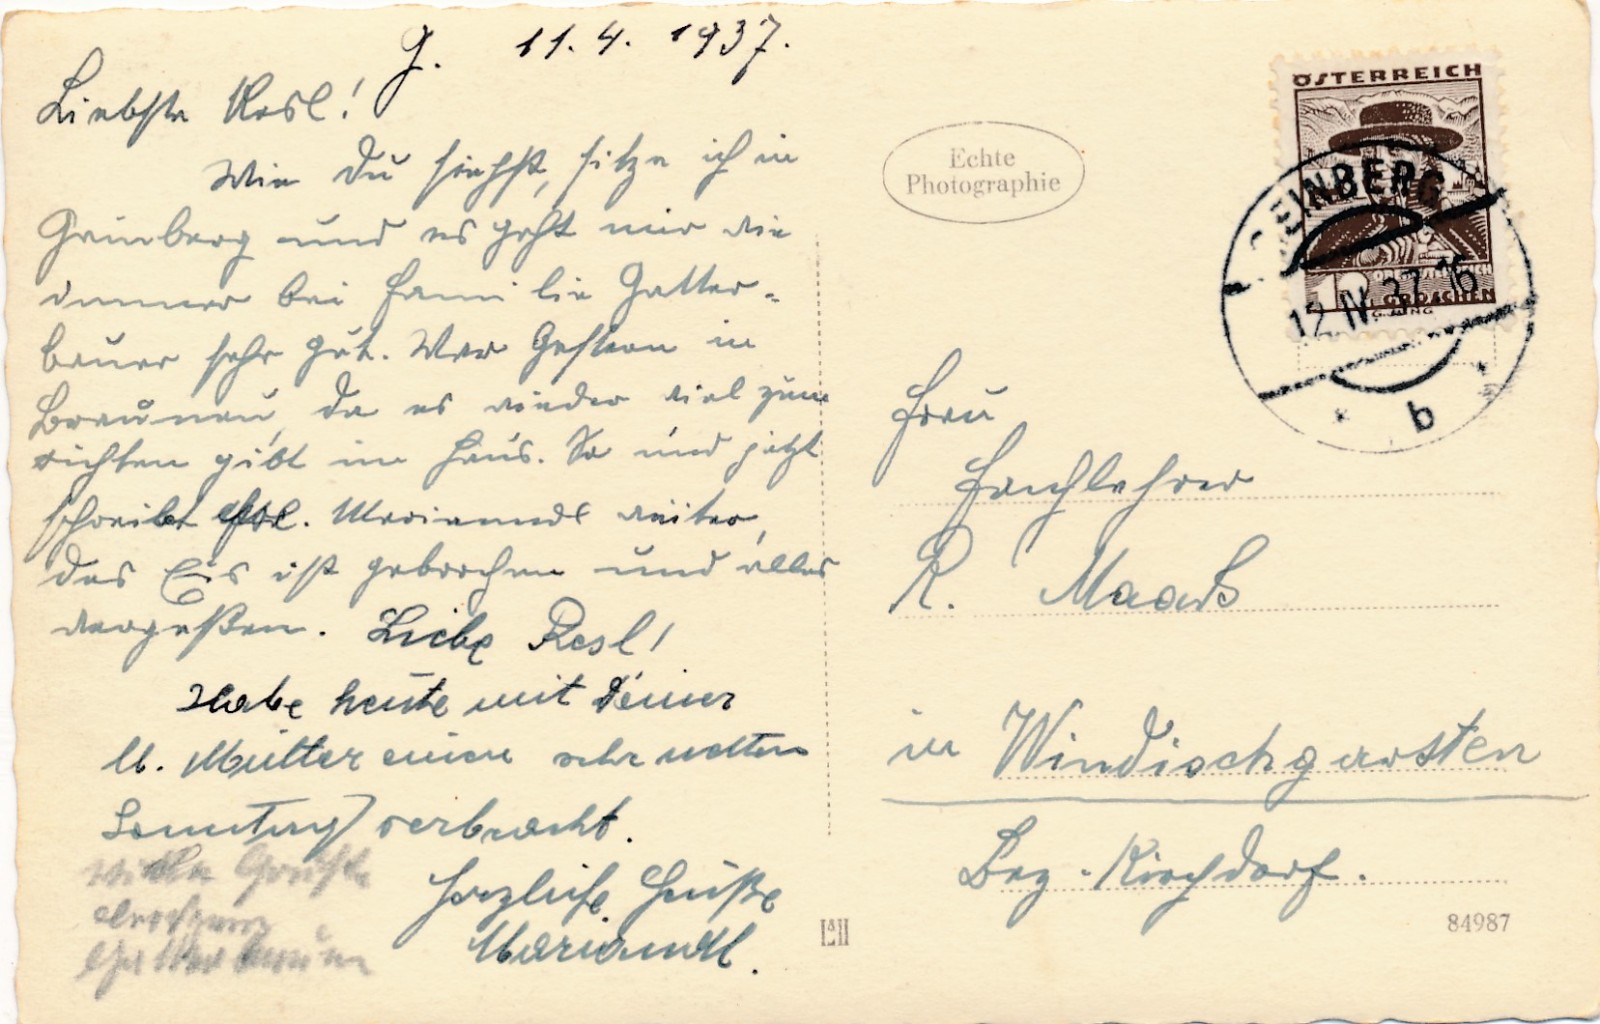 G. 11. 4. 1937.
Liebste Resl!
Wie Du siehst, sitze ich in
Geinberg und es geht mir wie
immer bei Familie Gatter-
bauer sehr gut. War gestern in
Braunau, da es wieder viel zum
richten gibt im Haus. So und jetzt
schreibt Frl. Mariandl weiter,
das Eis ist gebrochen und alles
vergeßen. Liebe Resl!
Habe heute mit Deiner
lb. Mutter einen sehr netten
Sonntag verbracht.
Herzliche Grüße
Mariandl.
Viele Grüße
Gatterbauer
Echte
Photographie
ÖSTERREICH
12 GROSCHEN
GEINBERG
12. IV. 37 16
* b *
Frau
Fachlehrer
R. Maars
in Windischgarsten
Bez. Kirchdorf.
84987